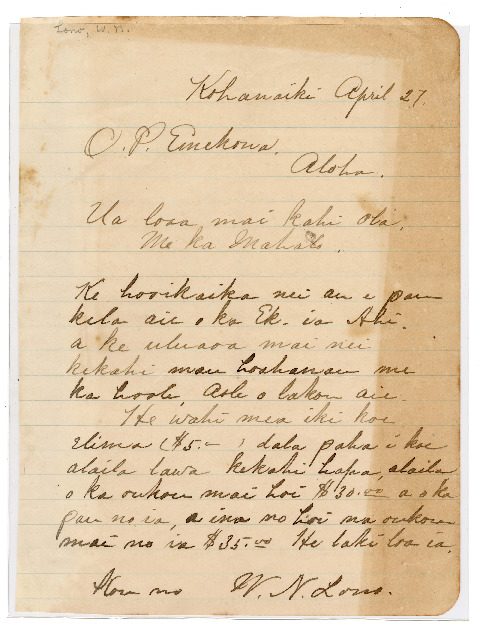 Lono, W. N.
Kohanaiki April 27.
O. P. Emekona.
Aloha.
Ua loaa mai kahi ola,
Me ka Mahalo.
Ke hooikaika nei au e pau
kela aie o ka Ek. ia Ahi.
a ke uluaoa mai nei
kekahi mau hoahanau me
ka hoole, Aole o lakou aie.
He wahi mea iki koe
elima ($5.-) dala paha i koe
alaila lawa kekahi hapa, alaila
o ka oukou mai hoi $30.00 a o ka
pau no ia, a ina no hoi na oukou
mai no ia $35.00 He laki loa ia.
Kou no W. N. Lono.